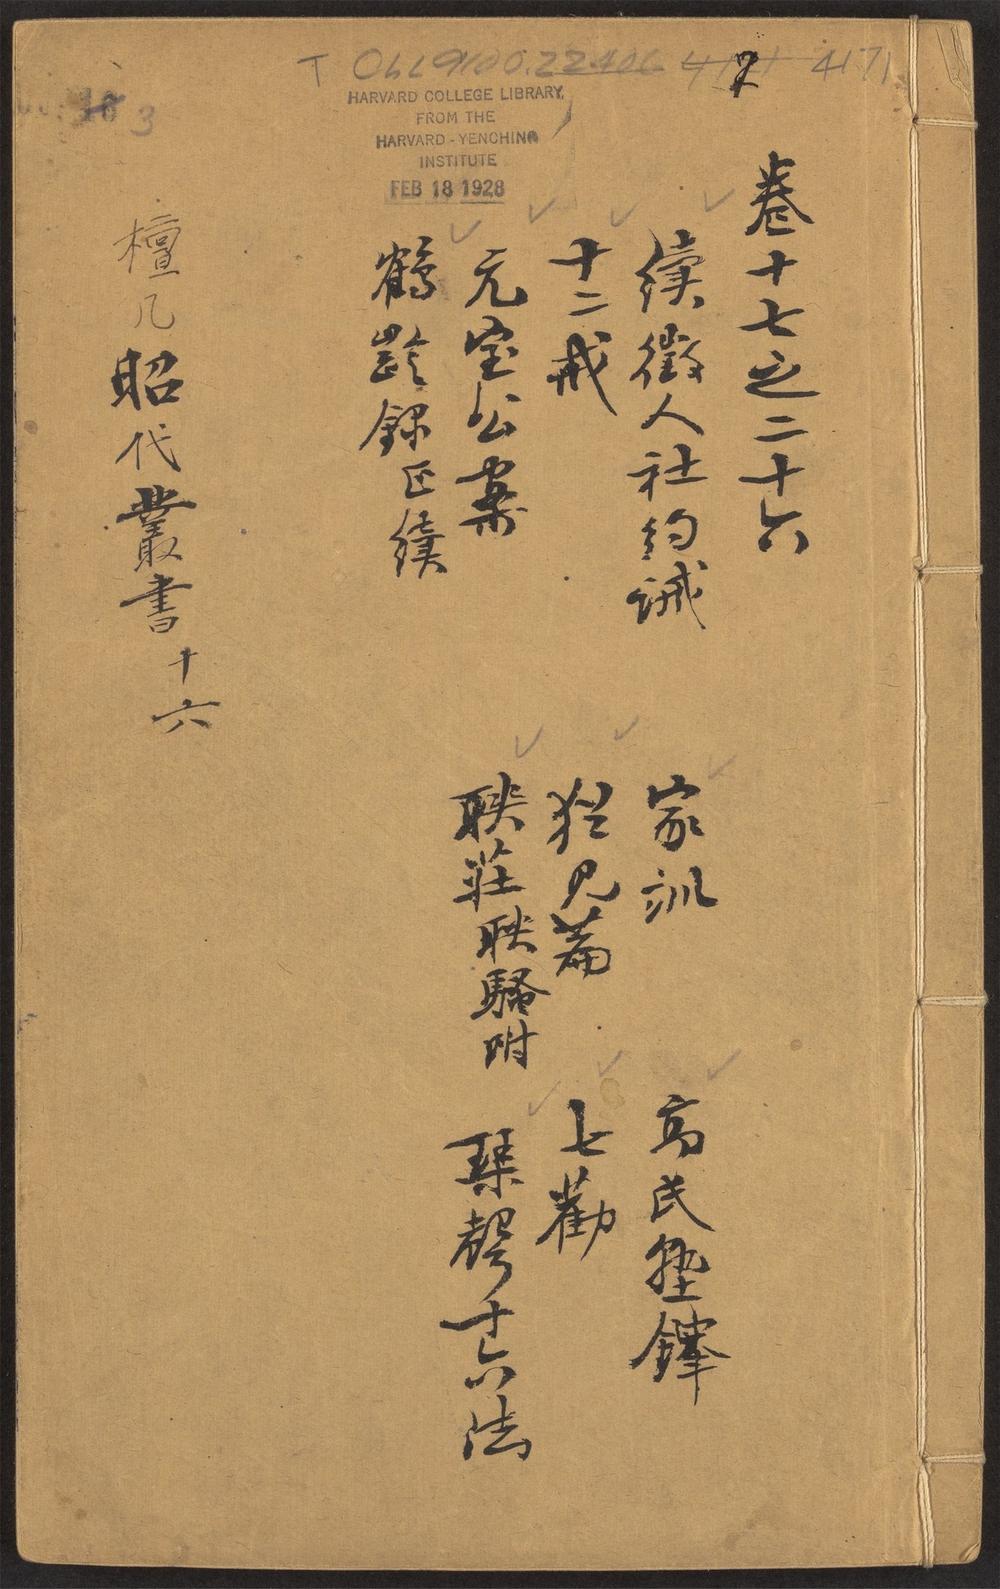 T OLL9100.22406 4171 4171
HARVARD COLLEGE LIBRARY
FROM THE
HARVARD-YENCHING
INSTITUTE
FEB 18 1928
3
卷十七之二十六
續徵人社約誡 家訓 高氏塾鐸
十二戒 猶見篇 七勸
元宝公案 聯莊聯騷附 琴聲十六法
鶴齡錄正續
檀几昭代叢書十六